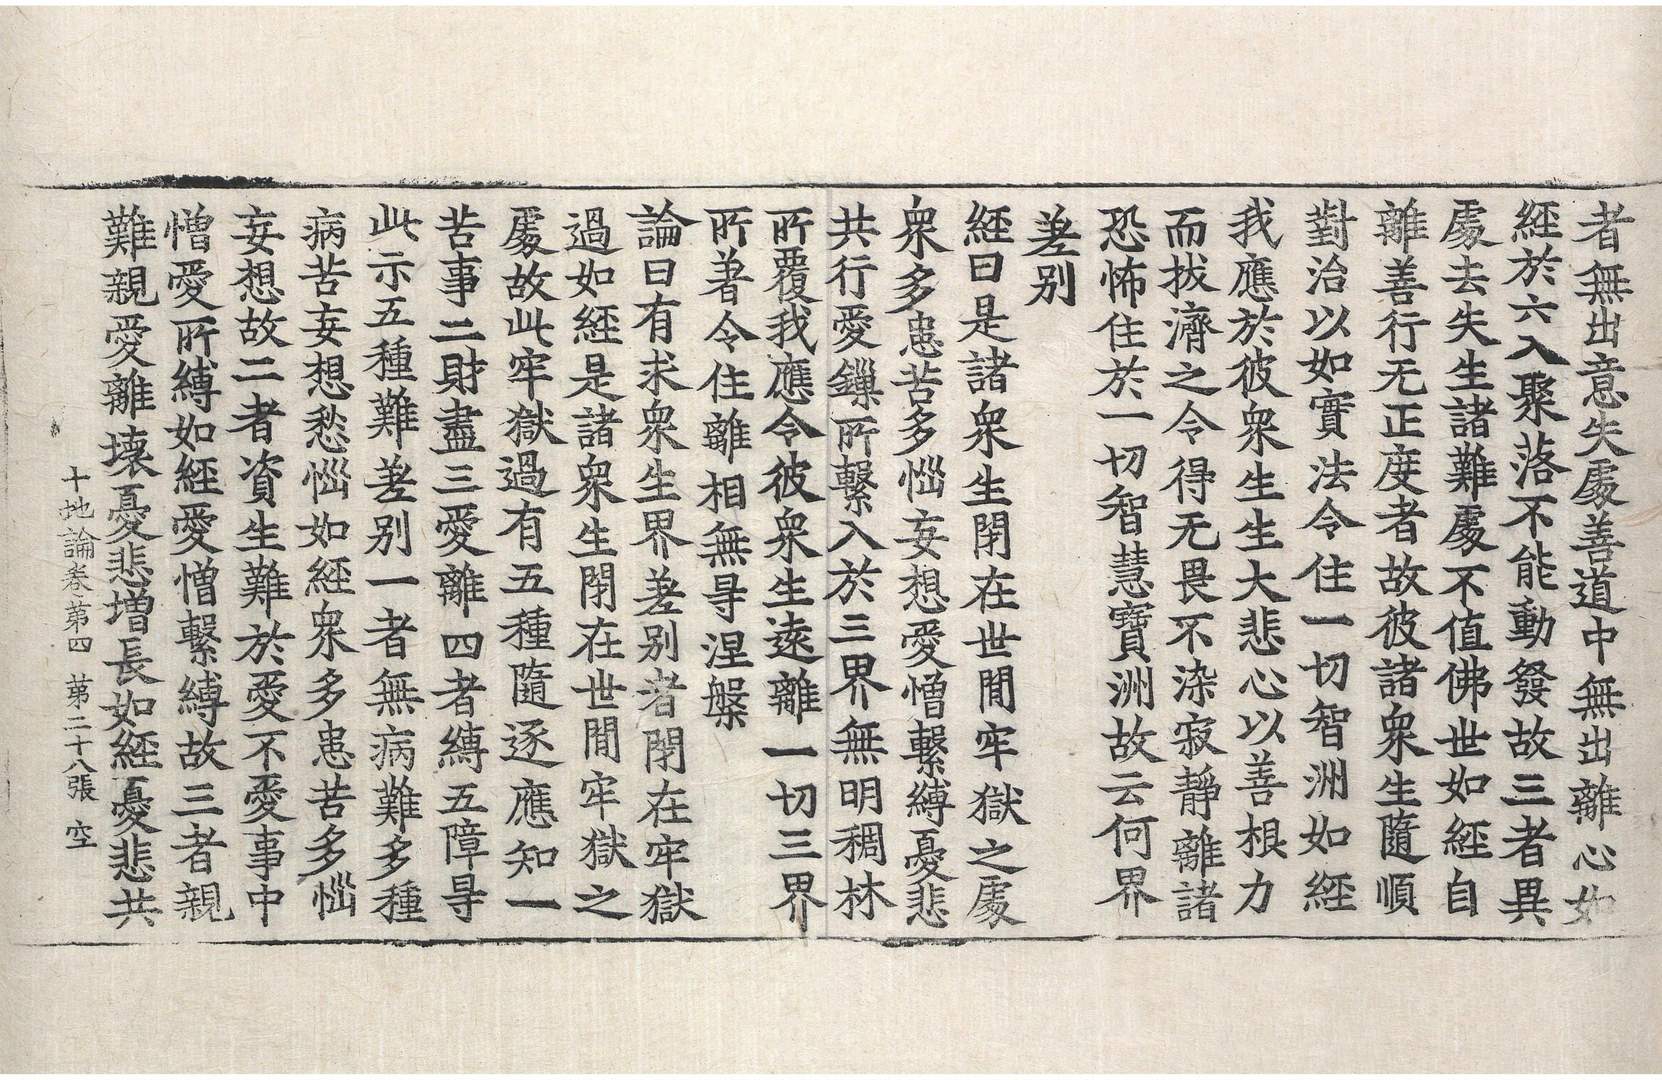 者無出意失處善道中無出離心如
經於六入聚落不能動發故三者異
處去失生諸難處不值佛世如經自
離善行无正度者故彼諸衆生隨順
對治以如實法令住一切智洲如經
我應於彼衆生生大悲心以善根力
而拔濟之令得无畏不染寂靜離諸
恐怖住於一切智慧寶洲故云何界
差别
經曰是諸衆生閉在世閒牢獄之處
衆多患苦多惱妄想愛憎繫縛憂悲
共行愛鏁所繫入於三界無明稠林
所覆我應令彼衆生遠離一切三界
所著令住離相無㝵涅槃
論曰有求衆生界差别者閉在牢獄
過如經是諸衆生閉在世閒牢獄之
處故此牢獄過有五種隨逐應知一
苦事二財盡三愛離四者縛五障㝵
此示五種難差别一者無病難多種
病苦妄想愁惱如經衆多患苦多惱
妄想故二者資生難於愛不愛事中
憎愛所縛如經愛憎繫縛故三者親
難親愛離壞憂悲增長如經憂悲共
十地論卷第四　第二十八張　空